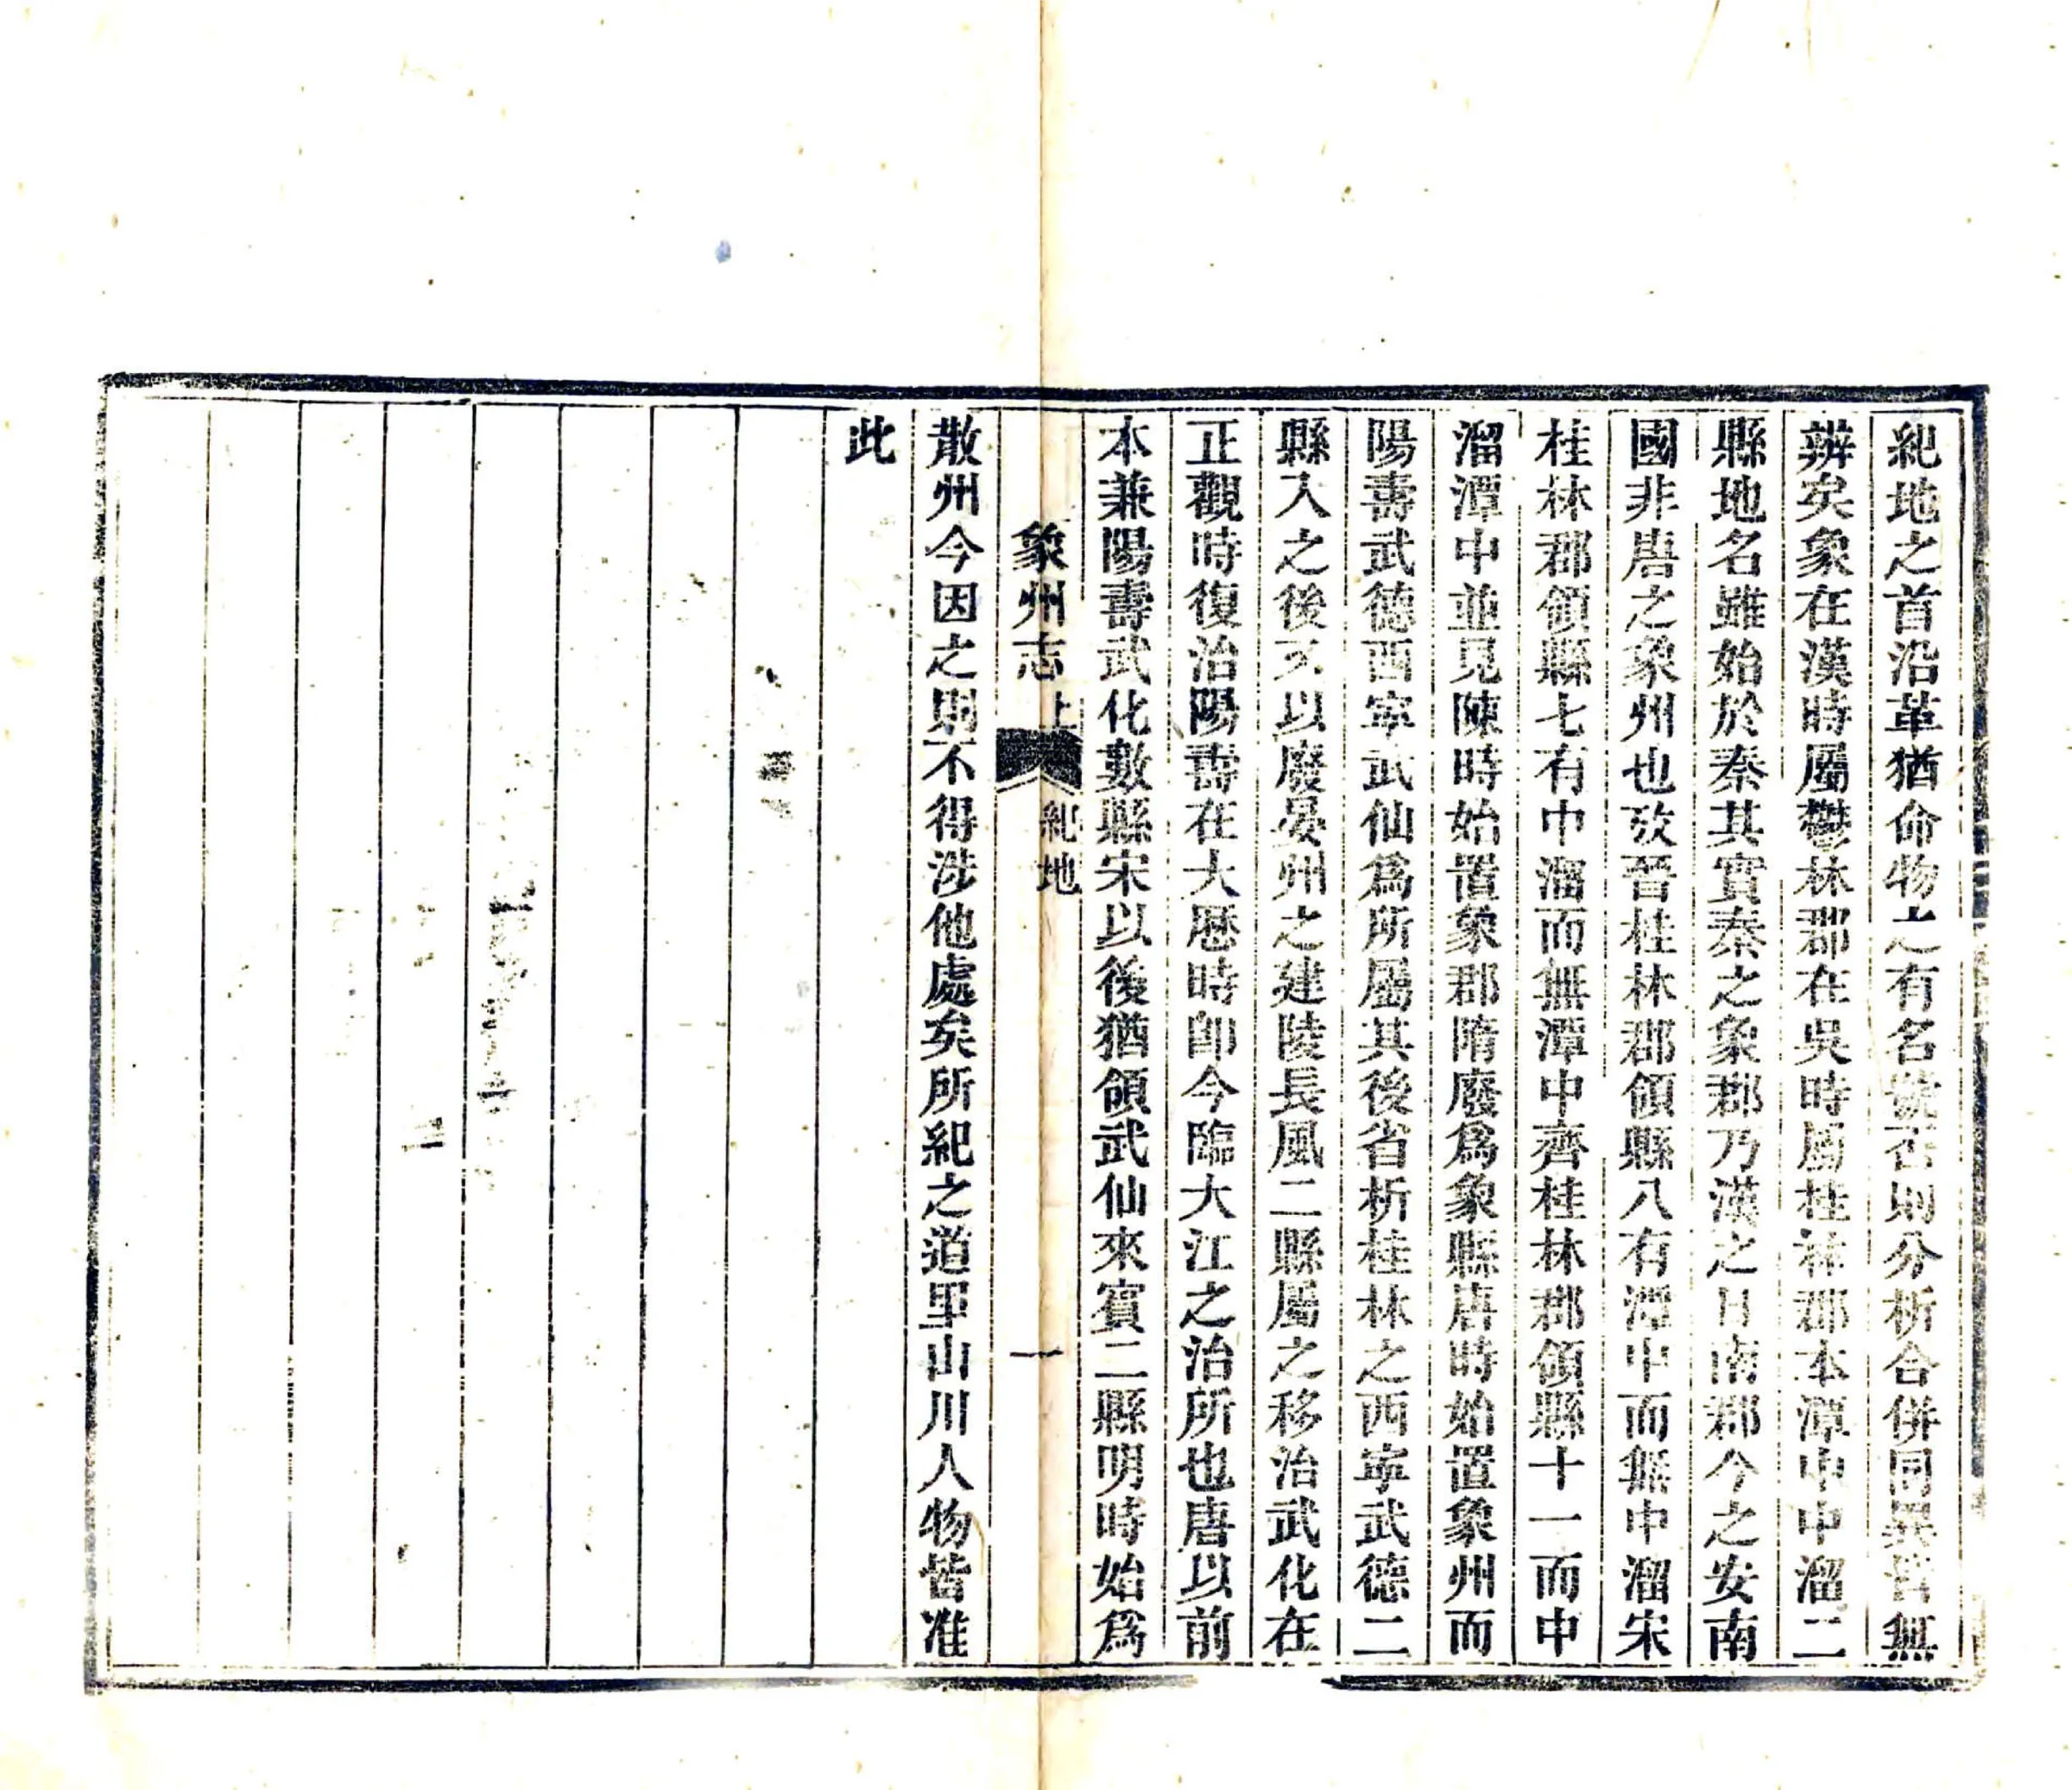 紀地之首沿革猶命物之有名號否則分析合併同異皆無
辨矣象在漢時屬鬱林郡在吳時屬桂林郡本潭中中溜二
縣地名雖始於秦其實秦之象郡乃漢之日南郡今之安南
國非唐之象州也攷晉桂林郡領縣八有潭中而無中溜宋
桂林郡領縣七有中溜而無潭中齊桂林郡領縣十一而中
溜潭中並見陳時始置象郡隋廢爲象縣唐時始置象州而
陽壽武德西寧武仙爲所屬其後省析桂林之西寧武德二
縣入之後又以廢晏州之建陵長風二縣屬之移治武化在
正觀時復治陽壽在大曆時卽今臨大江之治所也唐以前
本兼陽壽武化數縣宋以後猶領武仙來賓二縣明時始爲
象州志 上 紀地 一
散州今因之則不得涉他處矣所紀之道里山川人物皆准
此